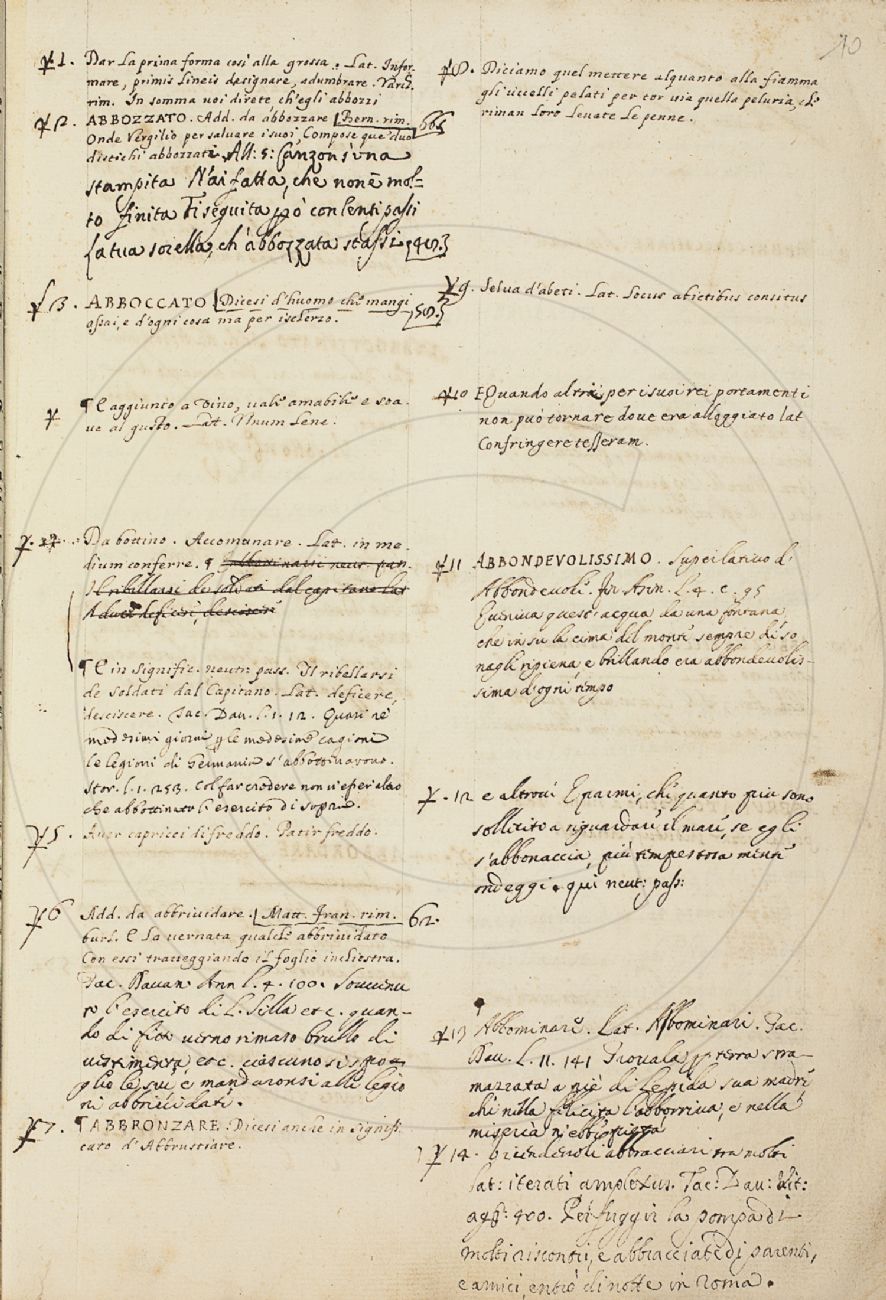 10
1. Dar la prima forma così alla grossa. Lat. Infor-
mare, primis lineis designare, adumbrare. Varch.
rim. In somma voi direte ch'egli abbozzi
2. ABBOZZATO. Add. da abbozzare Bern. rim.
Onde Vergilio per salvare i suoi, Compose que' duo
distichi abbozzati. All: 5: Canzon s'una
stampita N'ai fatta, che non è mol-
to finita Ti seguita però con lenti passi
La tua sorella, ch'abbozzata stassi
3. ABBOCCATO Dicesi d'huomo che mangi
assai, e d'ogni cosa ma per ischerzo.
¶ E aggiunto a vino, vale amabile e soa-
ve al gusto. Lat. Vinum lene.
Da bottino. Accomunare. Lat. in me-
dium conferre. ¶
Il ribellarsi de soldati dal capitano lat
¶ E in signific. neutr. pass. Il ribellarsi
de soldati dal Capitano. Lat. deficere,
desciscere. Tac. Dav. l. 1. 12. Quasi ne
medesimi giorni per le medesime cagioni
le legioni di Germania s'abbottinarono.
Stor. l. 1. 253. Col far credere non v'esser altro
che abbottinato l'esercito di sopra.
5. Aver capricci di freddo. Patir freddo.
6 Add. da abbrividare. Matt. Fran. rim. 62.
burl. E la vernata qualche abbrividato
Con essi tratteggiando il foglio inchiostra.
Tac. Davan. Ann l. 4. 100. Sovvenne
ro l'esercito di L. Silla etc. quan-
do di fitto verno rimaso brullo di
vestimenta, etc. ciascuno si spo
glio le sue e mandaronsi alle legio
ni abbrividati.
7. ¶ ABBRONZARE. Dicesi anche in signifi
cato d'Abbrustiare.
8. Diciamo quel mettere alquanto alla fiamma
gli uccelli pelati per tor via quella peluria, che
riman loro Levate le penne.
9. Selva d'abeti. Lat. Locus abietibus consitus
10 E Quando altri per i suoi rei portamenti
non può tornare dove era alloggiato lat
Confringere tesseram.
11 ABBONDEVOLISSIMO. Superlativo di
Abbondevole. Fir Asin. L. 4. c. 95
Queniva quest'acqua da una fontana
che in su la cima del monte sempre di so
nagli ripiena e brillando era abbondevolis-
sima d'ogni tempo
12 e altrove E parmi, che quanto piu sono
sollicito a riguardare il mare, se egli
s'abbonaccia, piu tempestosa mente
ondeggi. qui neut: pass:
13 Abbominare. Lat. Abbominari. Tac.
Dav. L. 11. 141 Trovala per terra stra-
mazzata a piè di Lepida sua madre
che nella felicita l'abborriva, e nella
miseria n'ebbe
14. vicendevoli abbracciari tra molti
lat: iterati amplexus. Tac: Dav: Vit:
agr: 400. Per fuggir la pompa di
molti riscontri, e abbracciate di parenti,
e amici, entrò di notte in Roma.